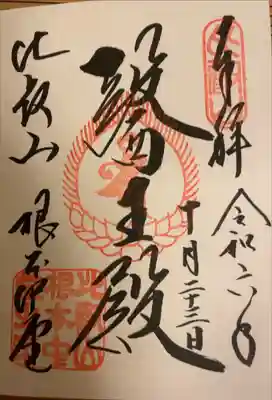 奉拝
令和六年
十月二十三日
醫王殿
比叡山
根本中堂